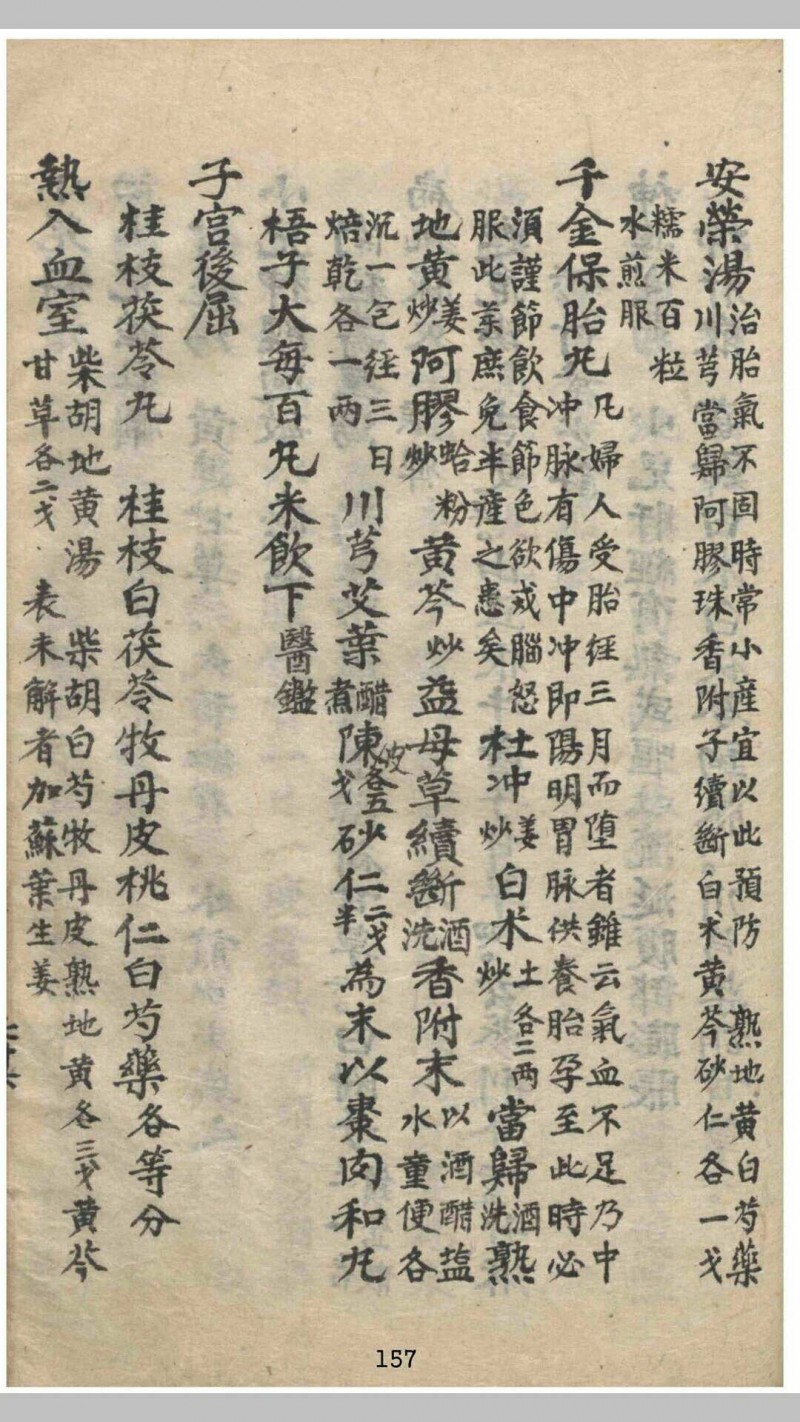 安榮湯 治胎氣不固時常小產宜以此預防 熟地黃白芍藥
川芎當歸阿膠珠香附子續斷白朮黃芩砂仁各一戈
糯米百粒
水煎服
千金保胎丸 凡婦人受胎經三月而墮者雖云氣血不足乃中
冲脉有傷中冲即陽明胃脉供養胎孕至此時必
須謹節飲食節色欲戒腦怒
服此薬庶免半產之患矣 杜冲姜炒白朮土炒各二兩當歸酒洗熟
地黃姜炒阿膠蛤粉炒黃芩炒益母草續斷酒洗香附末以酒醋盐水童便各
沉一包經三日焙乾各一兩川芎艾葉醋煮陳皮各五戈砂仁二戈半為末以棗肉和丸
梧子大每百丸米飲下醫鑑
子宮後屈
桂枝茯苓丸 桂枝白茯苓牧丹皮桃仁白芍藥各等分
熱入血室 柴胡地黃湯 柴胡白芍牧丹皮熟地黃各三戈黃芩
甘草各二戈 表未解者加蘇葉生姜
157